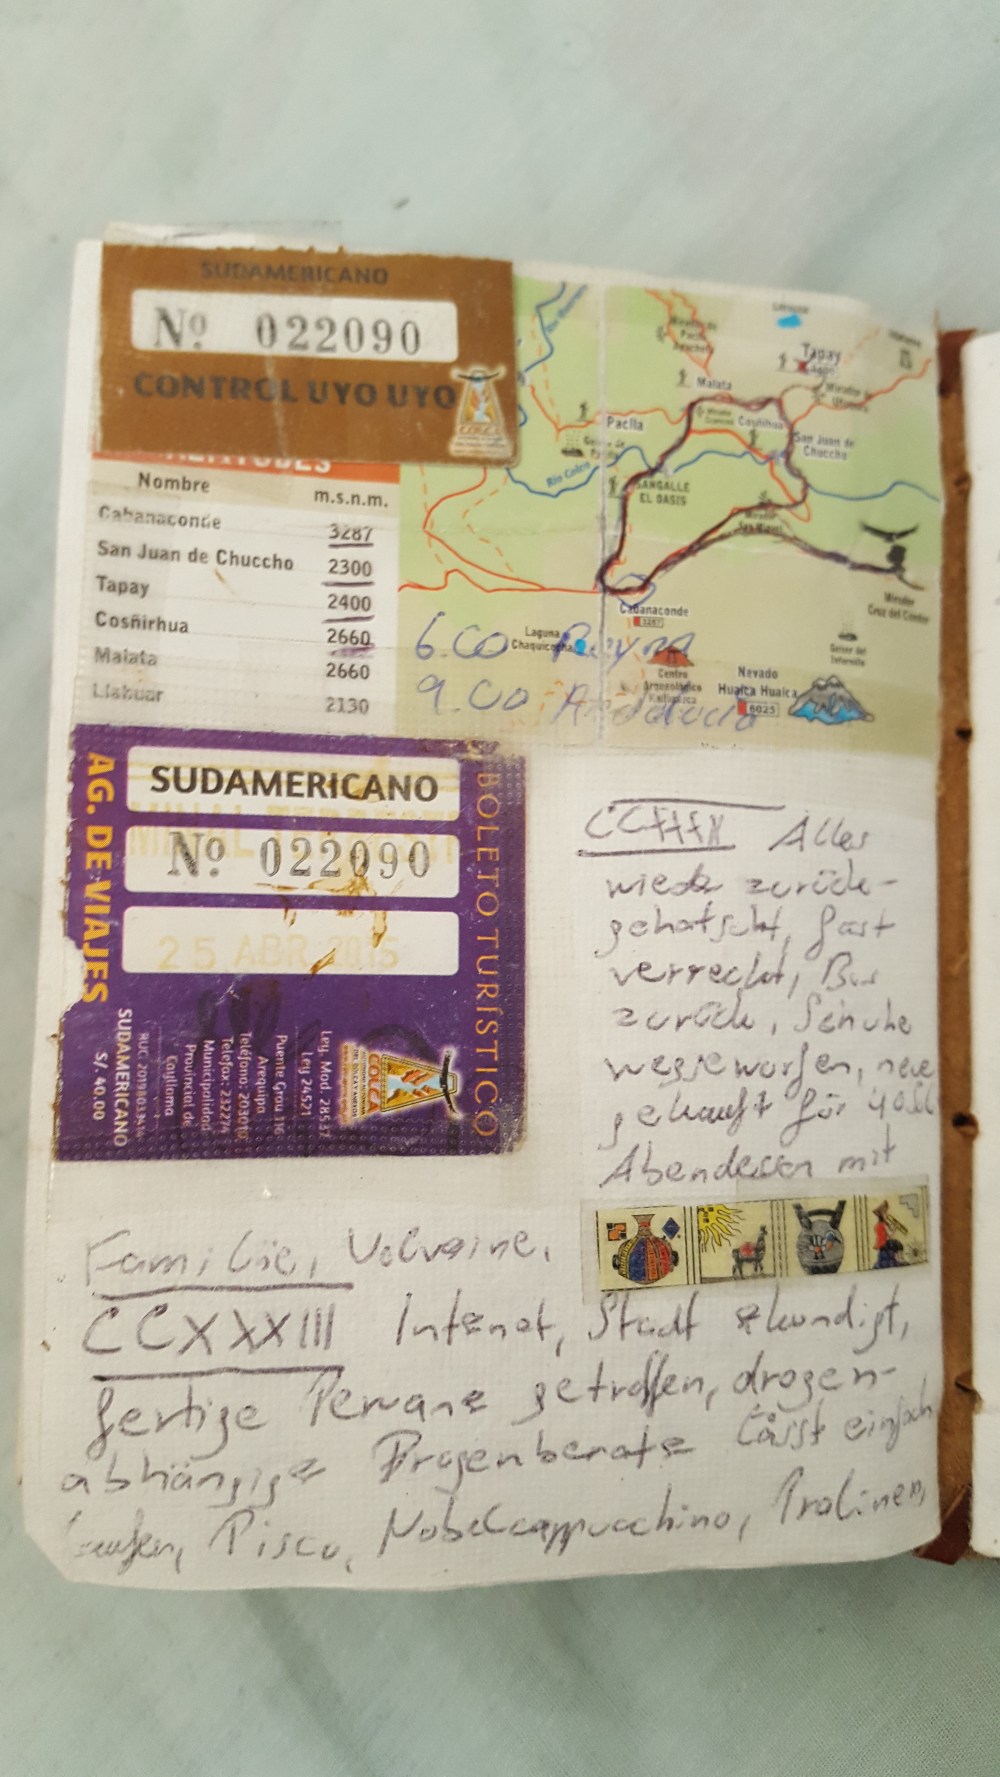 SUDAMERICANO
Nº 022090
CONTROL UYO UYO
COLCA
ALTITUDES
Nombre m.s.n.m.
Cabanaconde 3287
San Juan de Chuccho 2300
Tapay 2400
Cosñirhua 2660
Malata 2660
Llahuar 2130
Tapay
Malata
Paclla
Cosñihua
San Juan de
Chuccho
Rio Colca
SANGALLE
EL OASIS
Mirador
San Miguel
Mirador
Cruz del Condor
Cabanaconde
3287
Laguna
Chaquicocha
Centro
Arqueológico
Geiser del
Infiernillo
Nevado
Hualca Hualca
6025
6.00 Reyna
9.00 Andalucia
AG. DE VIAJES
SUDAMERICANO
Nº 022090
25 ABR 2015
BOLETO TURÍSTICO
SUDAMERICANO
S/. 40.00
Municipalidad
Provincial de
Caylloma
Puente Grau 116
Arequipa
Teléfono: 203010
Ley. Mod. 28537
Ley 24521
COLCA
Alles
wieder zurück-
gehatscht, fast
verreckt, Bus
zurück, Schuhe
weggeworfen, neue
gekauft für 40 Sol
Abendessen mit
Familie, Volvoine.
CCXXXIII Internet, Stadt erkundigt,
fertige Peruaner getroffen, drogen-
abhängiger Drogenberater lässt einfach
laufen, Pisco, Nobelcappucchino, Pralinen,